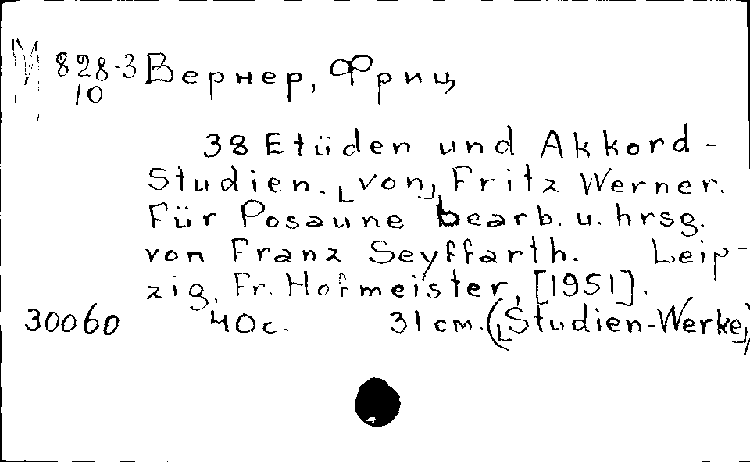 М 828-3 Вернер, Фриц
10
38 Etüden und Akkord-
Studien. [von] Fritz Werner.
Für Posaune bearb. u. hrsg.
von Franz Seyffarth. Leip-
zig, Fr. Hofmeister, [1951].
30060 40 c. 31 см. ([Studien-Werke])